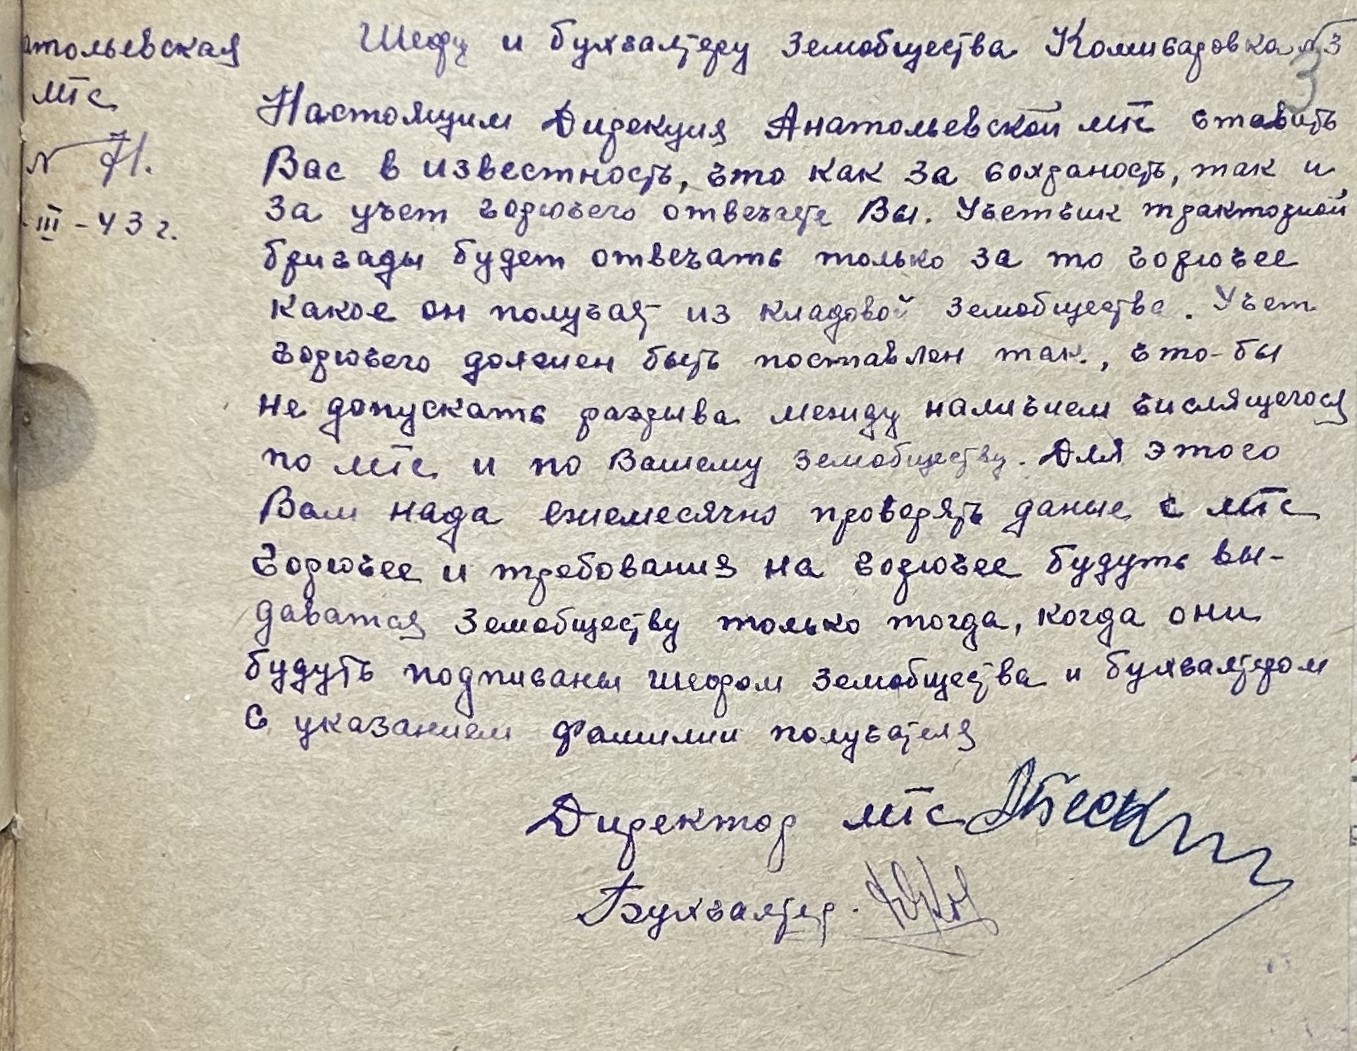 атольевская
МТС
N 71.
III-43 г.
Шефу и бухгалтеру Земобщества Комиваровка N3
3
Настоящим Дирекция Анатольевской МТС ставить
Вас в известность, что как за сохраность, так и
за учет горючего отвечаете Вы. Учетчик тракторной
бригады будет отвечать только за то горючее
какое он получает из кладовой Земобщества. Учет
горючего должен быть поставлен так, что-бы
не допускать разрыва между наличием числящегося
по МТС и по Вашему Земобществу. Для этого
Вам нада ежемесячно проверять даные с МТС
Горючее и требования на горючее будуть вы-
даватся Земобществу только тогда, когда они
будуть подписаны шефом Земобщества и бухгалтером
С указанием фамилии получателя
Директор МТС
Бухгалтер.